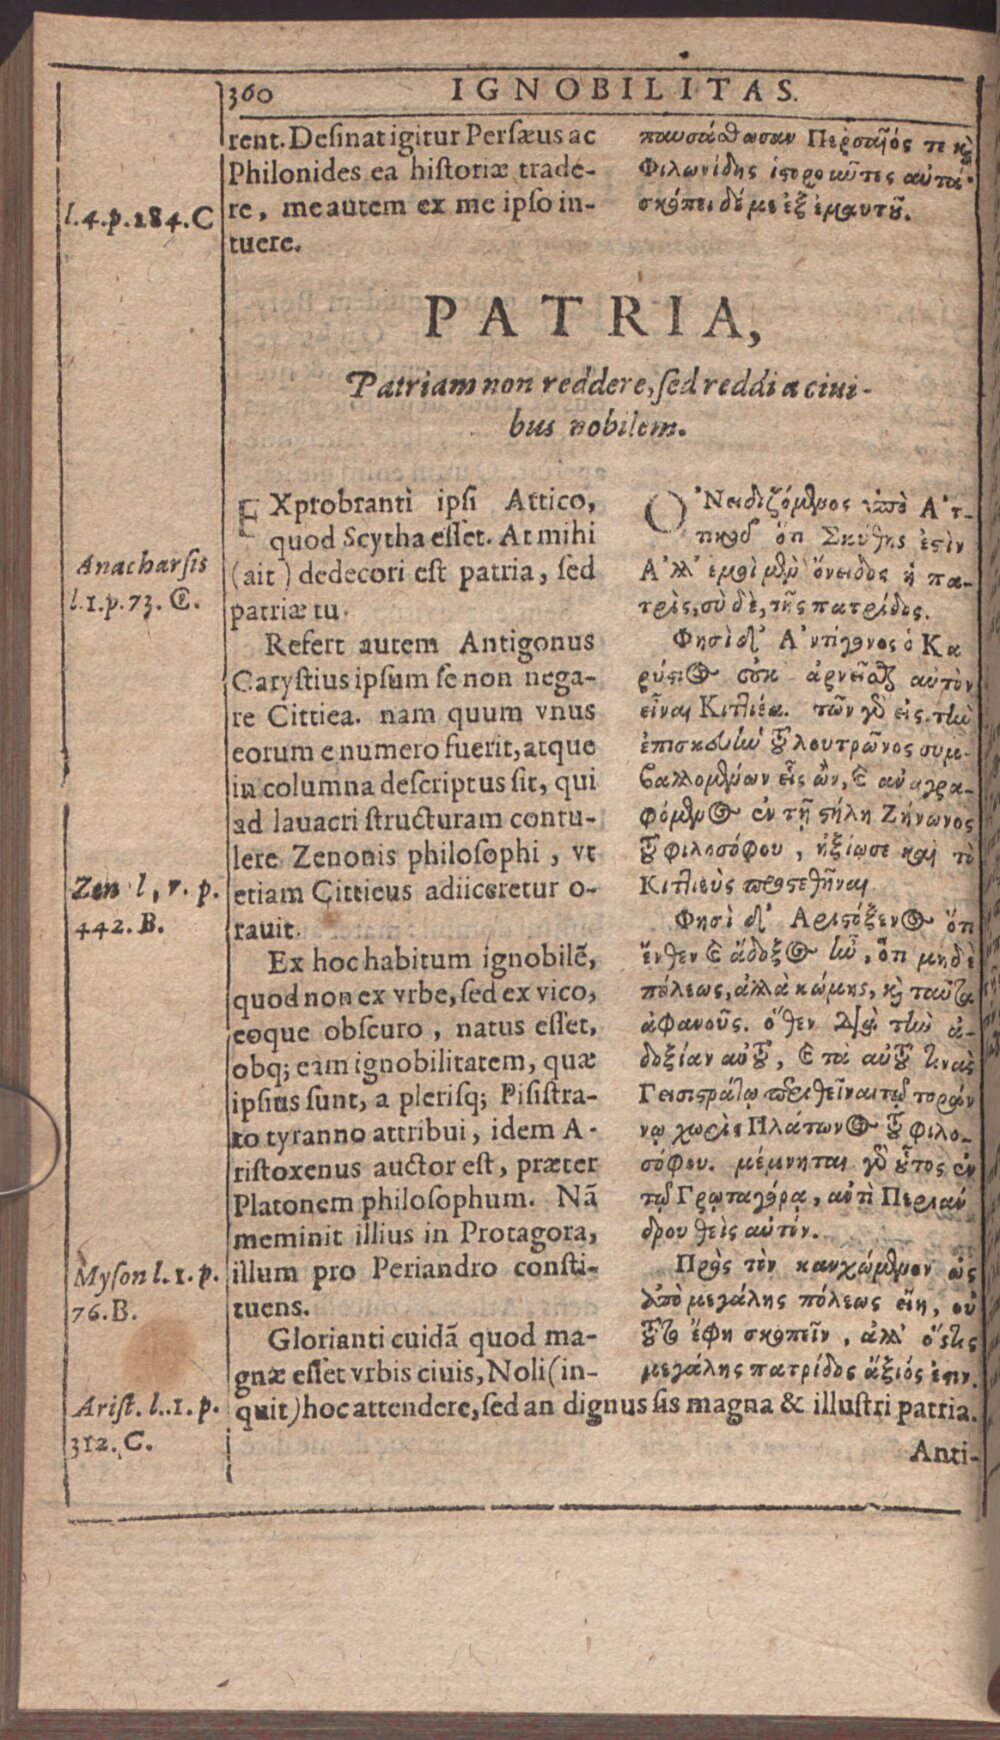 360
IGNOBILITAS.
rent. Desinat igitur Persæus ac
Philonides ea historiæ trade-
re, me autem ex me ipso in-
tuere.
l.4.p.184.C
παυσάσθωσαν Περσαῖός τε κỳ
Φιλωνίδης ἱστοροῦντες αὐτά·
σκόπει δέ με ἐξ ἐμαυτοῦ.
PATRIA,
Patriam non reddere, sed reddi a ciui-
bus nobilem.
EXprobranti ipsi Attico,
quod Scytha esset. At mihi
(ait) dedecori est patria, sed
patriæ tu.
Anacharsis
l.1.p.73.C.
Refert autem Antigonus
Carystius ipsum se non nega-
re Cittiea. nam quum vnus
eorum e numero fuerit, atque
in columna descriptus sit, qui
ad lauacri structuram contu-
lere Zenonis philosophi, vt
etiam Cittieus adiiceretur o-
rauit.
Zen l, 7. p.
442. B.
Ex hoc habitum ignobilẽ,
quod non ex vrbe, sed ex vico,
eoque obscuro, natus esset,
obq; eam ignobilitatem, quæ
ipsius sunt, a plerisq; Pisistra-
to tyranno attribui, idem A-
ristoxenus auctor est, præter
Platonem philosophum. Nã
meminit illius in Protagora,
illum pro Periandro consti-
tuens.
Myson l. 1. p.
76. B.
Glorianti cuidã quod ma-
gnæ esset vrbis ciuis, Noli (in-
quit) hoc attendere, sed an dignus sis magna & illustri patria.
Arist. l. 1. p.
312. C.
ΟʼΝειδιζόμενος ὑπὸ Ἀτ-
τικοῦ ὅτι Σκύθης ἐστὶν
Ἀλλʼ ἐμοὶ μὲν ὄνειδος ἡ πα-
τρὶς, σὺ δὲ, τῆς πατρίδος.
Φησὶ δʼ Ἀντίγονος ὁ Κα
ρύστιος οὐκ ἀρνεῖσθαι αὐτὸν
εἶναι Κιτιέα. τῶν γὰρ εἰς τὴν
ἐπισκευὴν τοῦ λουτρῶνος συμ-
βαλλομένων εἷς ὢν, καὶ ἀναγρα-
φόμενος ἐν τῇ στήλη Ζήνωνος
τοῦ φιλοσόφου, ἠξίωσε καὶ τὸ
Κιτιεὺς προστεθῆναι
Φησὶ δʼ Ἀριστόξενος ὅτι
ἔνθεν καὶ ἄδοξος ἦν, ὅτι μηδὲ
πόλεως, ἀλλὰ κώμης, κỳ ταῦτα
ἀφανοῦς. ὅθεν διὰ τὴν ἀ-
δοξίαν αὐτοῦ, καὶ τὰ αὐτοῦ τινὰς
Πεισιστράτῳ περιθεῖναι τῷ τυράν
νῳ χωρὶς Πλάτωνος τοῦ φιλο-
σόφου. μέμνηται γὰρ οὗτος ἐν
τῷ Πρωταγόρᾳ, ἀντὶ Περιάν
δρου θεὶς αὐτόν.
Πρὸς τὸν καυχώμενον ὡς
ἀπὸ μεγάλης πόλεως εἴη, οὐ
τοῦτο ἔφη σκοπεῖν, ἀλλʼ ὅστις
μεγάλης πατρίδος ἄξιός ἐστιν.
Anti-